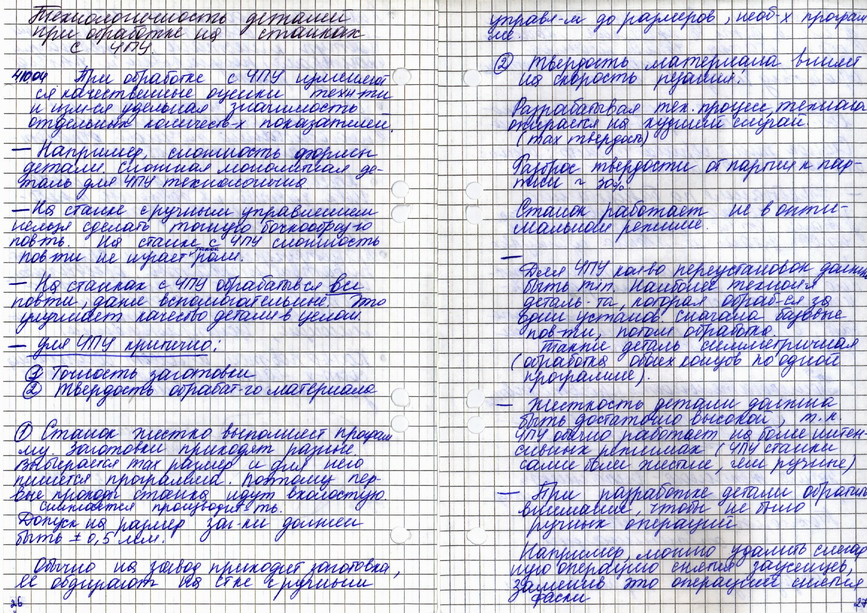 Технологичность детали
при обработке на станках
с ЧПУ
При обработке с ЧПУ изменяют
ся качественные оценки техн-ти
и изм-ся удельная значимость
отдельных количеств-х показателей.
— Например, сложность формы
детали. Сложная монолитная де-
таль для ЧПУ технологична
— На станке с ручным управлением
нельзя сделать точную бочкообразную
пов-ть. На станке с ЧПУ сложность
пов-ти не играет роли.
— На станках с ЧПУ обрабатыв-ся все
пов-ти, даже вспомогательные. Это
улучшает качество детали в целом.
— Для ЧПУ критично:
① Точность заготовки
② Твердость обрабат-го материала
① Станок жестко выполняет програм
му. Заготовки приходят разные.
Выбирается max размер и для него
пишется программа. Поэтому пер-
вые проходы станка идут вхолостую
снижается производит-ть.
Допуск на размер заг-ки должен
быть ± 0,5 мм.
Обычно на завод приходит заготовка,
ее обдирают на стке с ручным
26
управл-м до размеров, необ-х програм
ме.
② Твердость материала влияет
на скорость резания!
Разрабатывая тех. процесс, технолог
опирается на худший случай
(max твердость)
Разброс твердости от партии к пар-
тии ~ 20%
Станок работает не в опти-
мальном режиме.
—
Для ЧПУ кол-во переустановок должно
быть min. Наиболее технол-я
деталь - та, которая обраб-ся за
один установ. Сначала базовые
пов-ти, потом обработка.
Также деталь симметричная
(обработка обоих концов по одной
программе).
— Жесткость детали должна
быть достаточно высокой, т.к.
ЧПУ обычно работает на более интен-
сивных режимах (ЧПУ станки
сами более жесткие, чем ручные)
— При разработке детали обратить
внимание, чтобы не было
ручных операций
Например, можно удалить слесар
ную операцию снятия заусенцев,
заменив это операцией снятия
фаски
27